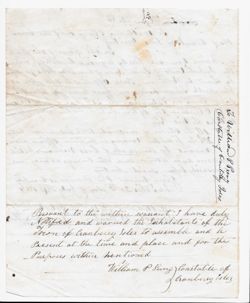 To William P. Preny
Constable of Cranberry Isles
Pursuant to the within warrant I have duly
Notifyed and warned the Inhabitants of the
Town of Cranberry Isles to assemble and be
Present at the time and place and for the
Purposes within mentioned
William P. Preny Constable of
Cranberry Isles